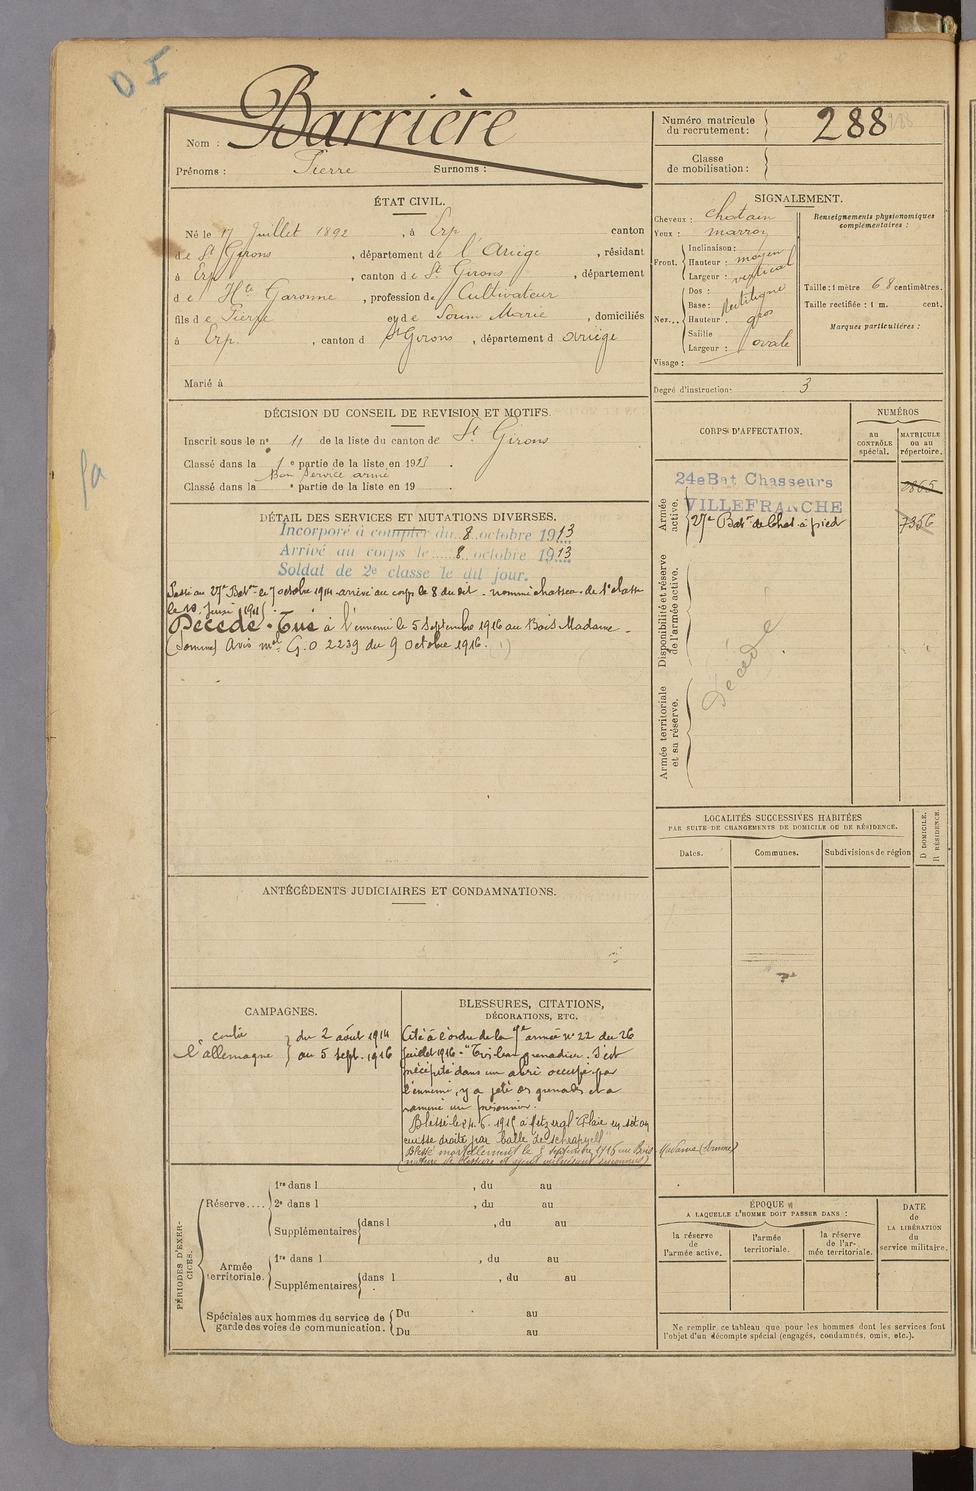 OI
Barrière
Nom :
Prénoms : Pierre Surnoms :
Numéro matricule
du recrutement : 288
Classe
de mobilisation :
ÉTAT CIVIL.
Né le 17 Juillet 1892, à Erp canton
de St Girons, département de l'Ariège, résidant
à Erp, canton de St Girons, département
de Hte Garonne, profession de Cultivateur
fils de Pierre et de Soum Marie, domiciliés
à Erp, canton d St Girons, département d Ariège
Marié à
SIGNALEMENT.
Cheveux : chatain
Yeux : marron
Front.
Inclinaison :
Hauteur : moyen
Largeur : vertical
Nez...
Dos :
Base : Rectiligne
Hauteur : gros
Saillie
Largeur : ovale
Visage :
Renseignements physionomiques
complémentaires :
Taille : 1 mètre 68 centimètres.
Taille rectifiée : 1 m. cent.
Marques particulières :
Degré d'instruction : 3
DÉCISION DU CONSEIL DE REVISION ET MOTIFS.
Inscrit sous le n° 11 de la liste du canton de St Girons
Classé dans la 1e partie de la liste en 1913.
Bon service armé
Classé dans la e partie de la liste en 19 .
DÉTAIL DES SERVICES ET MUTATIONS DIVERSES.
Incorporé à compter du 8 octobre 1913
Arrivé au corps le 8 octobre 1913
Soldat de 2e classe le dit jour.
Passé au 27e Baton le 7 octobre 1914 arrivé au corps le 8 du dit - nommé chasseur de 1e classe
le 10 Juin 1915.
Décédé. Tué à l'ennemi le 5 Septembre 1916 au Bois Madame -
(Somme) Avis mel G.O 2239 du 9 Octobre 1916. (1)
CORPS D'AFFECTATION.
NUMÉROS
au
CONTRÔLE
spécial.
MATRICULE
ou au
répertoire.
Armée
active.
24e Bat Chasseurs
VILLEFRANCHE
27e Baton de Chas à pied
7356
Disponibilité et réserve
de l'armée active.
Décédé
Armée territoriale
et sa réserve.
LOCALITÉS SUCCESSIVES HABITÉES
PAR SUITE DE CHANGEMENTS DE DOMICILE OU DE RÉSIDENCE.
Dates.
Communes.
Subdivisions de région
D DOMICILE.
R RÉSIDENCE.
ANTÉCÉDENTS JUDICIAIRES ET CONDAMNATIONS.
CAMPAGNES.
contre
l'allemagne
du 2 août 1914
au 5 sept. 1916
BLESSURES, CITATIONS,
DÉCORATIONS, ETC.
Cité à l'ordre de la armée n° 22 du 26
Juillet 1916 - "Très beau grenadier. S'est
précipité dans un abri occupé par
l'ennemi, y a jeté des grenades et a
ramené un prisonnier.
Blessé le 24.6.1915 à Metzeral Plaie en séton
cuisse droite par balle de schrapnell
Blessé mortellement le 5 septembre 1916 au Bois Madame (Somme)
PÉRIODES D'EXER-
CICES.
Réserve....
1re dans l , du au
2e dans l , du au
Supplémentaires dans l , du au
Armée
territoriale.
1re dans l , du au
Supplémentaires dans l , du au
Spéciales aux hommes du service de
garde des voies de communication.
Du au
Du au
ÉPOQUE
A LAQUELLE L'HOMME DOIT PASSER DANS :
la réserve
de
l'armée active.
l'armée
territoriale.
la réserve
de l'ar-
mée territoriale.
DATE
de
LA LIBÉRATION
du
service militaire.
Ne remplir ce tableau que pour les hommes dont les services font
l'objet d'un décompte spécial (engagés, condamnés, omis, etc.).